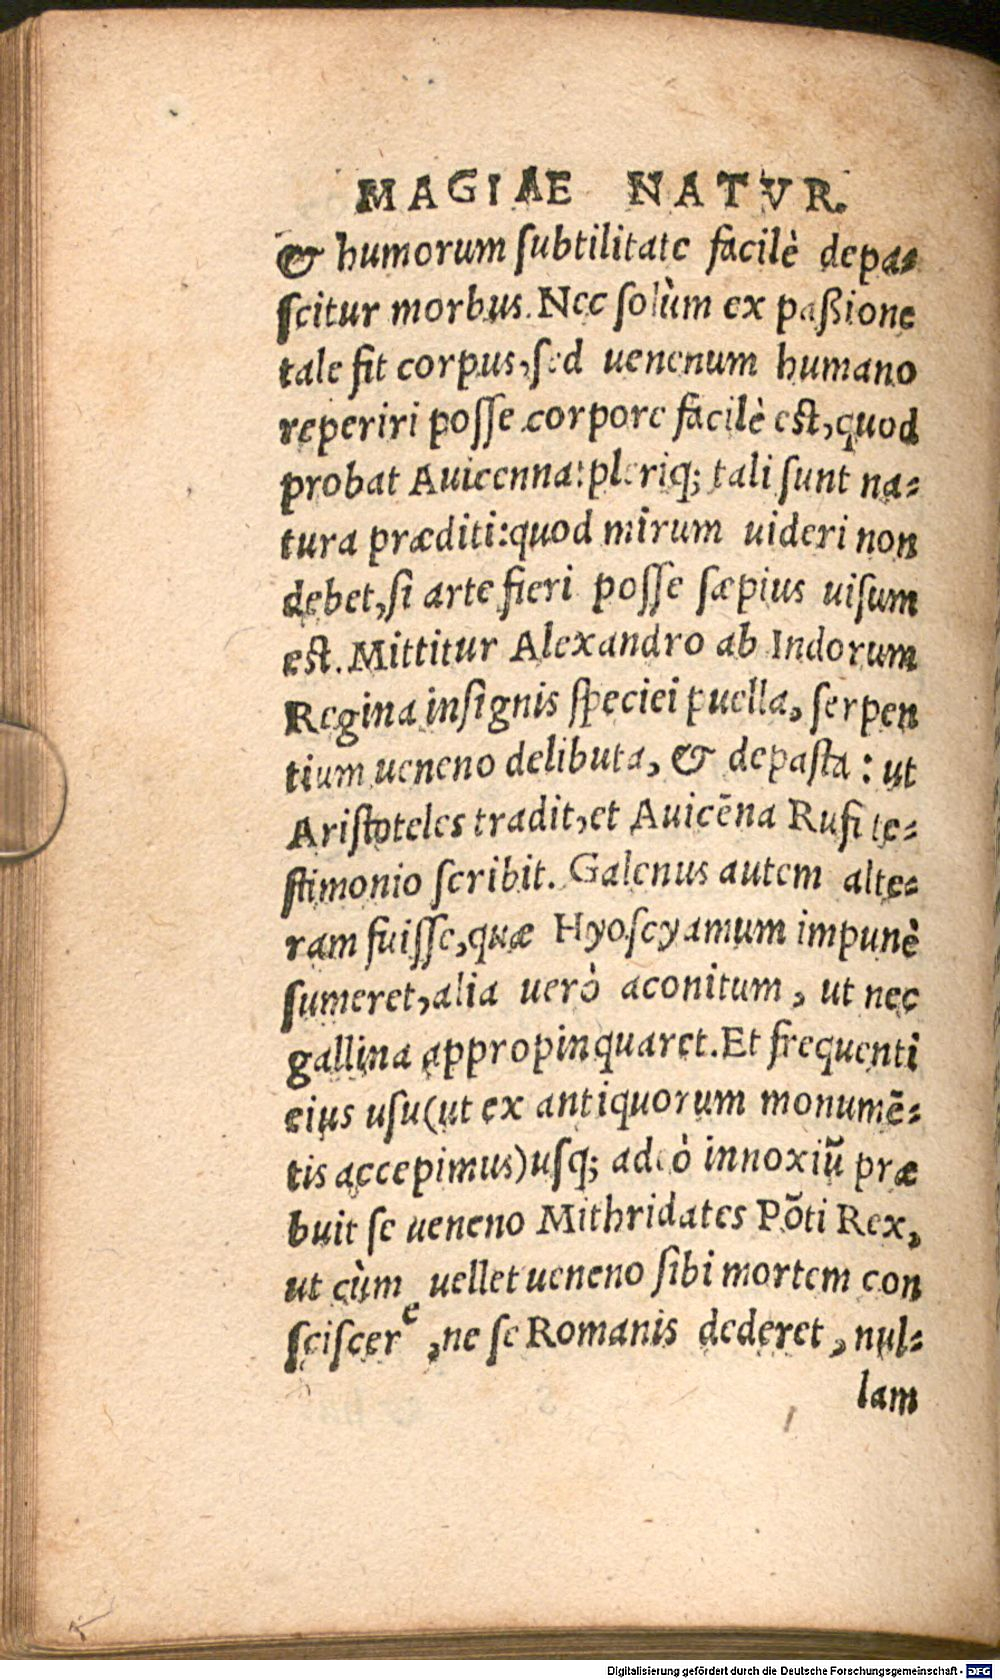 MAGIAE NATVR.
& humorum subtilitate facilè depa-
scitur morbus. Nec solùm ex paßione
tale fit corpus, sed uenenum humano
reperiri posse corpore facilè est, quod
probat Auicenna: pleriq; tali sunt na-
tura præditi: quod mirum uideri non
debet, si arte fieri posse sæpius uisum
est. Mittitur Alexandro ab Indorum
Regina insignis speciei puella, serpen
tium ueneno delibuta, & depasta : ut
Aristoteles tradit, et Auicēna Rufi te-
stimonio scribit. Galenus autem alte-
ram fuisse, quæ Hyoscyamum impunè
sumeret, alia uerò aconitum, ut nec
gallina appropinquaret. Et frequenti
eius usu (ut ex antiquorum monumē-
tis accepimus) usq; adeò innoxiū præ
buit se ueneno Mithridates Pōti Rex,
ut cùm uellet ueneno sibi mortem con
sciscere, ne se Romanis dederet, nul-
lam
Digitalisierung gefördert durch die Deutsche Forschungsgemeinschaft - DFG